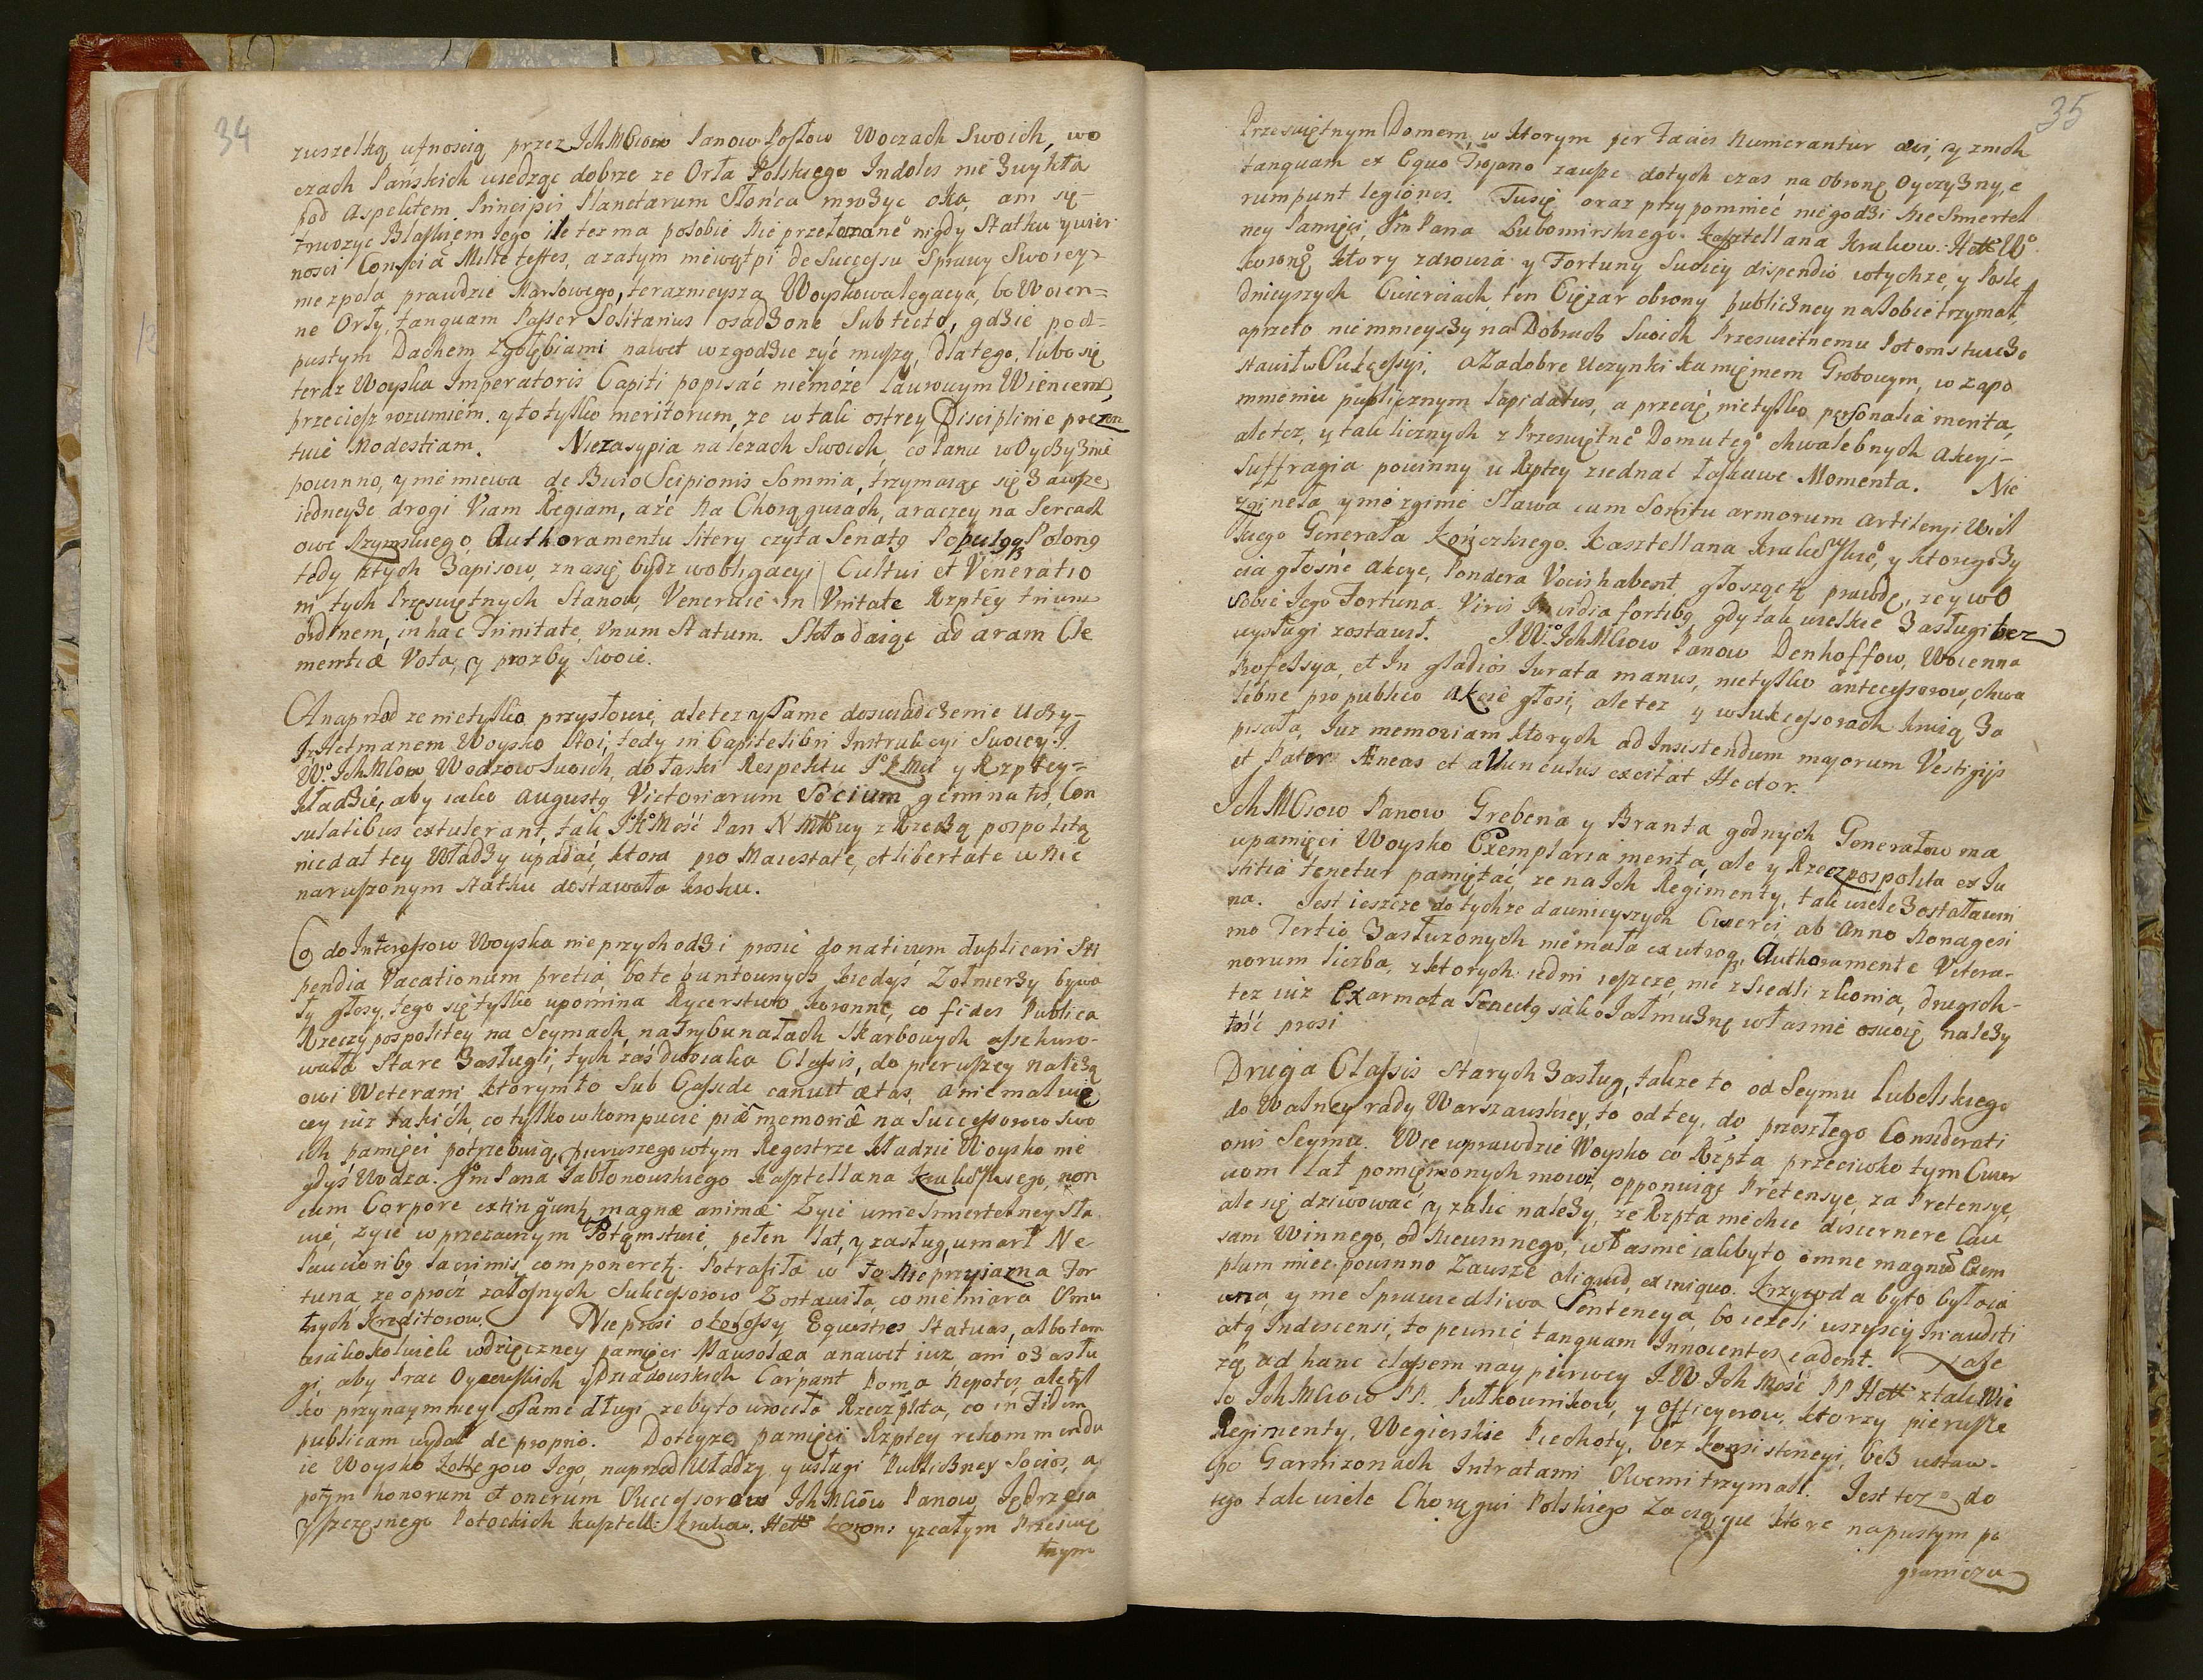 34
zuszelką ufnością przez Ich MCiow Panow Posłow Woczach Swoich, wo
czach Pańskich wiedząc dobrze ze Orła Polskiego Indoles nie zwykła
pod Aspektem Principis Planetarum Słońca mrożyc oka, ani się
trwozyc Blaskiem Iego ile tez ma po sobie nigdy Statku y wier
nosci Conscia Mille testes, a zatym niewątpi de Successu Sprawy Swoiey
nie z pola prawdzie Marsowego, teraznieysza Woyskowa legacya, bo Woien=
ne Orły, tanquam Passer Solitarius osadzone Sub tecto, gdzie pod=
pustym Dachem z gołębiami nawet w zgodzie zyć muszą, dlatego, lubo się
teraz Woyska Imperatoris Capiti popisać niemoże laurowym Wiencem,
przecięsz rozumiem y to tylko meritorum, ze w tak ostrey Disciplinie prezen
tuie Modestiam. Niezasypia na lezach Swoich, co Panu w Oyczyznie
powinno, y nie miewa de Buro Scipionis Somnia, trzymaiąc się zawsze
iedneysze drogi Viam Regiam, a ze na Chorągwiach, a raczey na Sercach
owe Rzymskiego Authoramentu litery czyta Senatq Populqq Polonq
tedy z tych Zapisow, zna się bydz w obligacyi Cultui et Veneratio
ni tych Przeswiętnych Stanow, Veneruie in Unitate Rzptey trium
ordinem, in hac Trinitate, Unum Statum. Składaiąc ad aram Cle
mentiæ Vota, y prozby Swoie.
A naprzod ze nietylko przysłowie, ale tez y Same doswiadczenie Uczy-
Iz Hetmanem Woysko stoi, tedy in Capite libri Instrukcyi Swoiey I.
Wo. Ich MCiow Wodzow Swoich, do łaski Respektu Io KMći y Rzptey=
kładzie, aby iako Augustq Victoriarum Socium geminatis Con
sulatibus extulerant, tak IKo Mość Pan N Młwy z Rzecżą pospolitą
niedał tey Władzy upadać, ktora pro Maiestate, et libertate w nie
naruszonym statku dostawała kroku.
Co do Interessow Woyska nie przychodzi prosić donativum duplicari Sti
pendia Vacationum pretia, bo te buntownych kiedyś Zołnierzy bywa
ły głosy, tego się tylko upomina Rycerstwo koronne, co fides Publica
Rzeczypospolitey na Seymach, na Trybunałach Skarbowych assekuro-
wała Stare Zasługi, tych zaś dwoiaka Classis, do pierwszey należą
owi Weterani, ktorym to Sub Casside canuit ætas, a nie mal wię
cey iuz takich, co tylko w kompucie piæ memoriæ na Successorow Swo
ich pamięci potrzebuią, pierwszego w tym Regestrze kładzie Woysko nie
gdyś Wodza. Im Pana Jabłonowskiego kasztellana Krakoskiego, non
cum Corpore extingunt magnæ animæ. Zyie w nieśmiertelney sła
wie, zyie w przezacnym Potomstwie, pełen lat, y zasług, umarł Ne
Paucioribq lacrimis componeretz. Potrafiła w to Nieprzyjazna For
tuna, ze oprocz załosnych Sukcessorow Zostawiła, co niemiara Smu
tnych kreditorow. Nieprosi o kolossy Equestres Statuas, albo tam
iakokolwiek wdzięczney pamięci Mausolæa a nawet iuz ani o zasłu
gi, aby Prac Oycowskich y Dziadowskich Carpant Poma Nepotes, ale tyl
ko przynaymniey Same długi, ze by to wrociła Rzeczpłta, co in Fidem
publicam wydał de proprio. Doteyze, pamięci Rzptey rekommendu
ie Woysko kollegow Iego, naprzod Władzy, y usługi Publiczney Socios, a
potym honorum et onerum Successorow Ich MCiow Panow Jędrzeia
y szczęsnego Potockich kasztell: krakow. Hettw koron: y z całym Przeswię
tnym
35
Przeswiętnym Domem, w ktorym per Facies Numerantur avi, y z nich
tanquam ex Equo Trojano zawsze dotych czas na obronę Oyczyzny, e
rumpunt legiones. Tu się oraz przypomnieć niegodzi Nieśmiertel
ney Pamięci, Im Pana Lubomirskiego kasztellana krakow. Hetto Wo
koronngo ktory zdrowia y Fortuny Swoiey dispendio wtychze, y Posle
dnieyszych Cwierciach, ten Ciężar obrony publiczney na sobie trzymał,
a przeto niemnieyszy na Dobrach Swoich Przeswietnemu Potomstwu zo
stawił w Sukcessyi, a za dobre Uczynki kamieniem Grobowym, w zapo
mnieniu publicznym lapidatus, a przecię, nietylko personalia merita,
ale tez, y tak licznych z Przeswiętnego Domu tego chwalebnych akcyi-
Suffragia powinny u Rzptey ziednać łaskawe Momenta. Nie
zgineła y nie zginie Sława cum Sonitu armorum Artileryi Wiel
kiego Generała Kończkiego. Kasztellana krakoskiego, y ktoregoż
cia głosne akcye, Pondera Vocis habent, głosząc tę prawdę, ze y wo
sobie Iego Fortuna Viris Invidia fortibq, gdy tak wielkie Zasługi bez
wysługi zostawił. I.Wo. Ich MCiow Panow Denhoffow, Woienna
Professya, et In gladios Iurata manus, nietylko antecessorow, chwa
lebne pro publico akcie głosi, ale tez y w Sukcessorach krwią Za
pisała, Iuz memoriam ktorych ad Insistendum majorum Vestigijs
et Pater Æneas et aVunculus excitat Hector.
Ich MCiow Panow Grebena y Branta godnych Generałow ma
w pamięci Woysko Exemplaria merita, ale y Rzeczpospolita ex Iu
stitia tenetur pamiętać, ze na Ich Regimenty, tak wiele zostało wini
na. Jest ieszcze do tychze dawnieyszych Cwierci, ab Anno Nonagesi
mo Tertio Zasłużonych niemała ex utroq, Authoramento Vetera-
norum liczba, z ktorych iedni ieszcze, nie zsiedli z konia, drugich-
tez iuż Exarmata Senectq iako Jałmużnę własnie o swoię należy
tość prosi
Druga Classis Starych Zasług, także to od Seymu Lubelskiego
do Walney rady Warszawskiey, to od tey, do przeszłego Considerati
onis Seyma. Wie wprawdzie Woysko co Rzpta przeciwko tym Cwier
ciom lat pomięnionych mowi, opponuiąc Pretensye, za Pretensye,
ale się dziwować y zalić należy, ze Rzpta niechce discernere Cau
sam Winnego, od Niewinnego, własnie iakby to omne magnum Exem
plum miec powinno Zawsze aliquid, ex iniquo. Krzywda by to była ia
wna, y nie Sprawiedliwa Sentencya, bo iezeli wszyscy Inauditi
atq Indescensi, to pewnie tanquam Innocentes cadent. Nale
zą ad hanc classem nay pierwey I.W. Ich Mość PP. Hetti z tak Wie
lo Ich MCiow PP. Pułkownikow, y Officyerow, ktorzy pierwsze
Regimenty, Wegierskie Piechoty, bez konsistencyi, bez ustaw-
po Garnizonach Intratami Swemi trzymali. Jest tez do
tego tak wiele Chorągwi Polskiego Zaciągu ktore na pustym po
graniczu